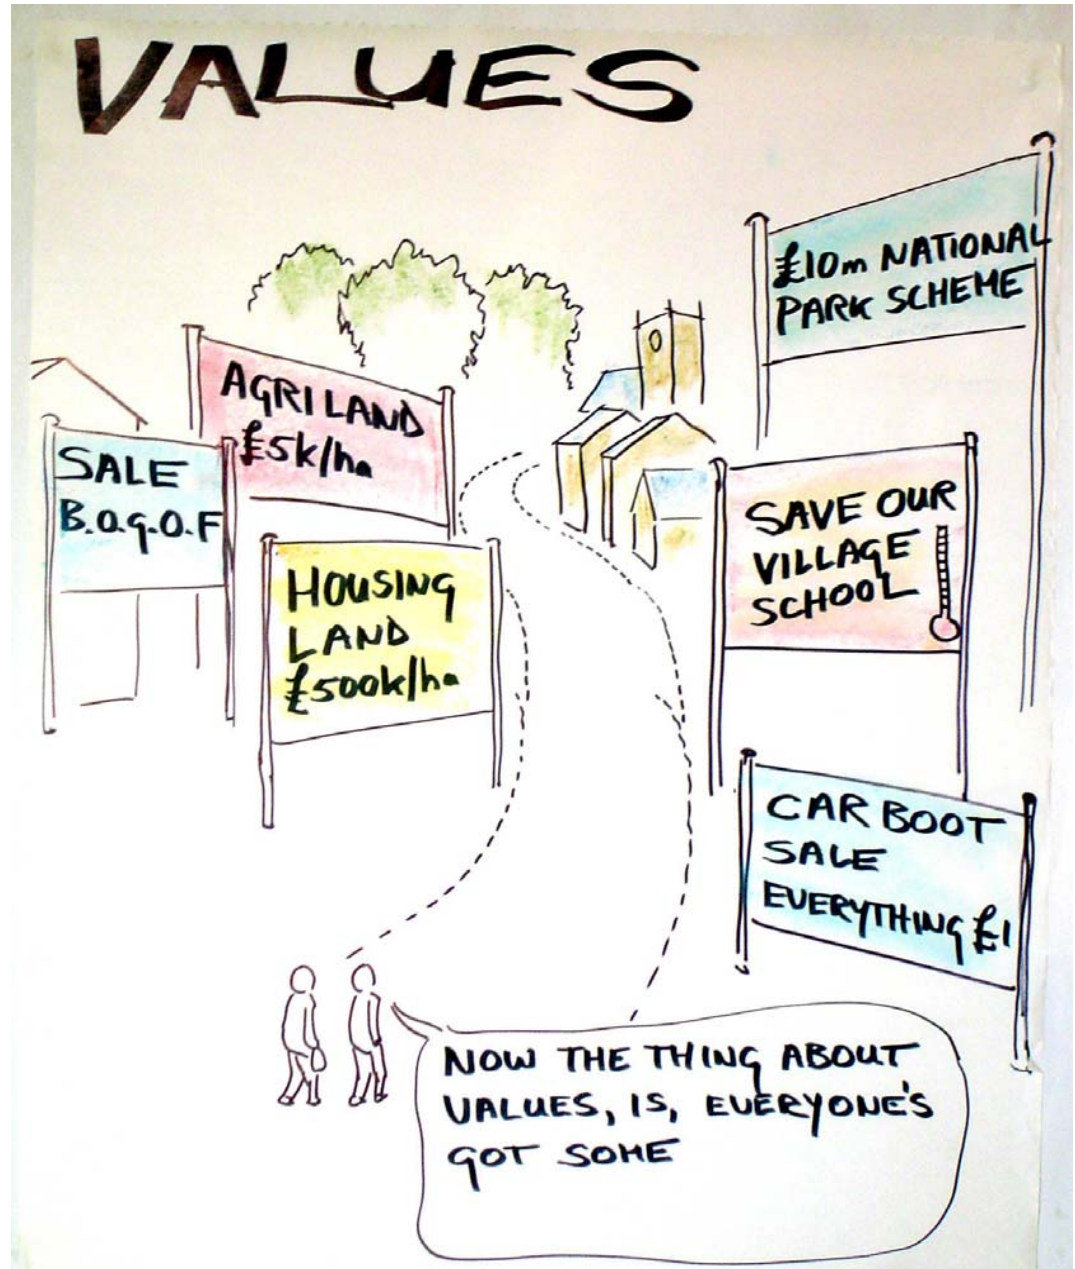 VALUES
£10m NATIONAL
PARK SCHEME
AGRI LAND
£5k/ha
SALE
B.O.G.O.F
HOUSING
LAND
£500k/ha
SAVE OUR
VILLAGE
SCHOOL
CAR BOOT
SALE
EVERYTHING £1
NOW THE THING ABOUT
VALUES, IS, EVERYONE'S
GOT SOME